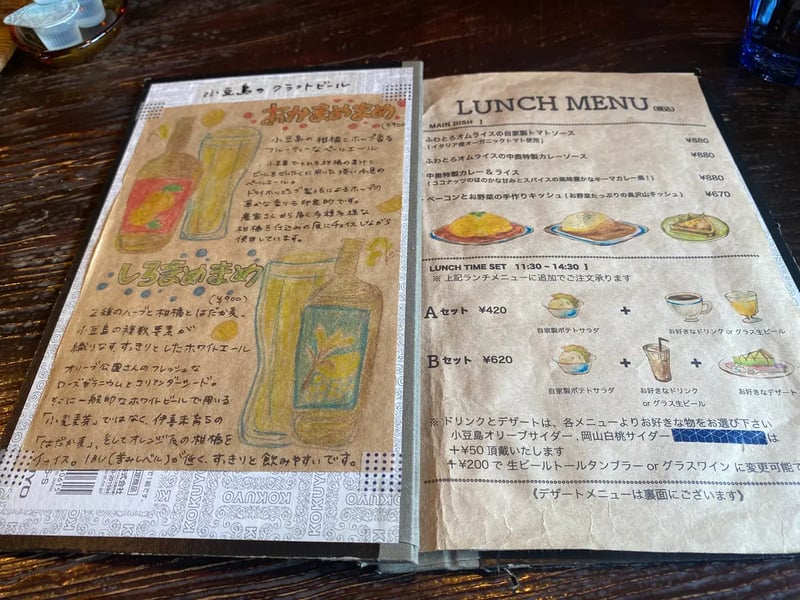 小豆島のクラフトビール
あかまめまめ
¥900
小豆島の柑橘とホップ香る
フルーティーなペールエール
小豆島でとれる柑橘の果汁と
ピールをぜいたくに用いた淡い赤色の
ペールエール。
ドライホッピング製法によるホップの
華やかな香りも印象的です。
農家さんから届く多種多様な
柑橘を仕込みの度にチョイスしながら
使用しています。
しろまめまめ
(¥900)
2種のハーブと柑橘とはだか麦、
小豆島の雑穀果実が
織りなすすっきりとしたホワイトエール
オリーブ公園さんのフレッシュな
ローズゼラニウムとコリアンダーシード。
そこに一般的なホワイトビールで用いる
「小麦麦芽」ではなく、伊喜末育ちの
「はだか麦」、そしてオレンジ灰の柑橘を
チョイス。IBU(苦みレベル)が低く、すっきりと飲みやすいです。
KOKUYO
LUNCH MENU (税込)
MAIN DISH 】
ふわとろオムライスの自家製トマトソース ¥880
(イタリア産オーガニックトマト使用)
ふわとろオムライスの中奥特製カレーソース ¥880
中奥特製カレー & ライス ¥880
(ココナッツのほのかな甘みとスパイスの風味豊かなキーマカレー風!)
ベーコンとお野菜の手作りキッシュ(お野菜たっぷりの具沢山キッシュ) ¥670
LUNCH TIME SET 11:30 - 14:30 】
※ 上記ランチメニューに追加でご注文承ります
Aセット ¥420
+
自家製ポテトサラダ
お好きなドリンク or グラス生ビール
Bセット ¥620
+
+
自家製ポテトサラダ
お好きなドリンク
or グラス生ビール
お好きなデザート
※ ドリンクとデザートは、各メニューよりお好きな物をお選び下さい
小豆島オリーブサイダー、岡山白桃サイダー は
+¥50 頂戴いたします
+¥200 で 生ビールトールタンブラー or グラスワイン に変更可能で
《デザートメニューは裏面にございます》